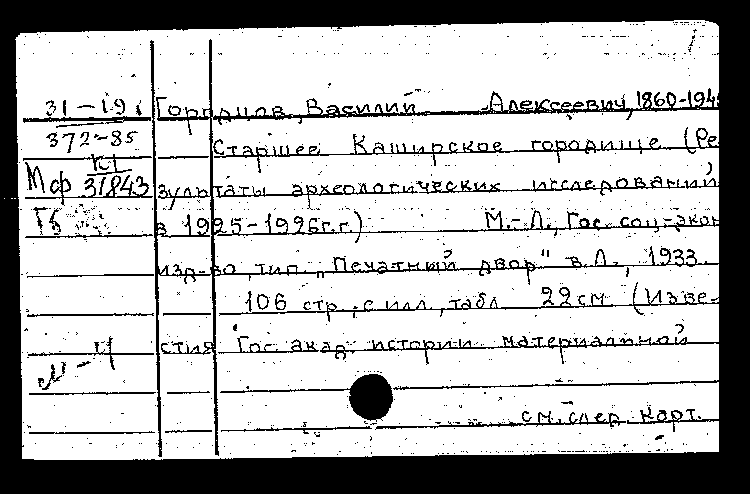 31-19
Городцов, Василий Алексеевич, 1860-194
372-85
Старшее Каширское городище (Ре-
К1
Мф 31843
зультаты археологических исследований
Гб
в 1925-1926г.г.) М.-Л., Гос. соц-экон
изд-во, тип. „Печатный двор" в Л., 1933.
106 стр., с илл., табл. 22см (Изве-
стия Гос. акад. истории материальной
М-4
см. след. карт.